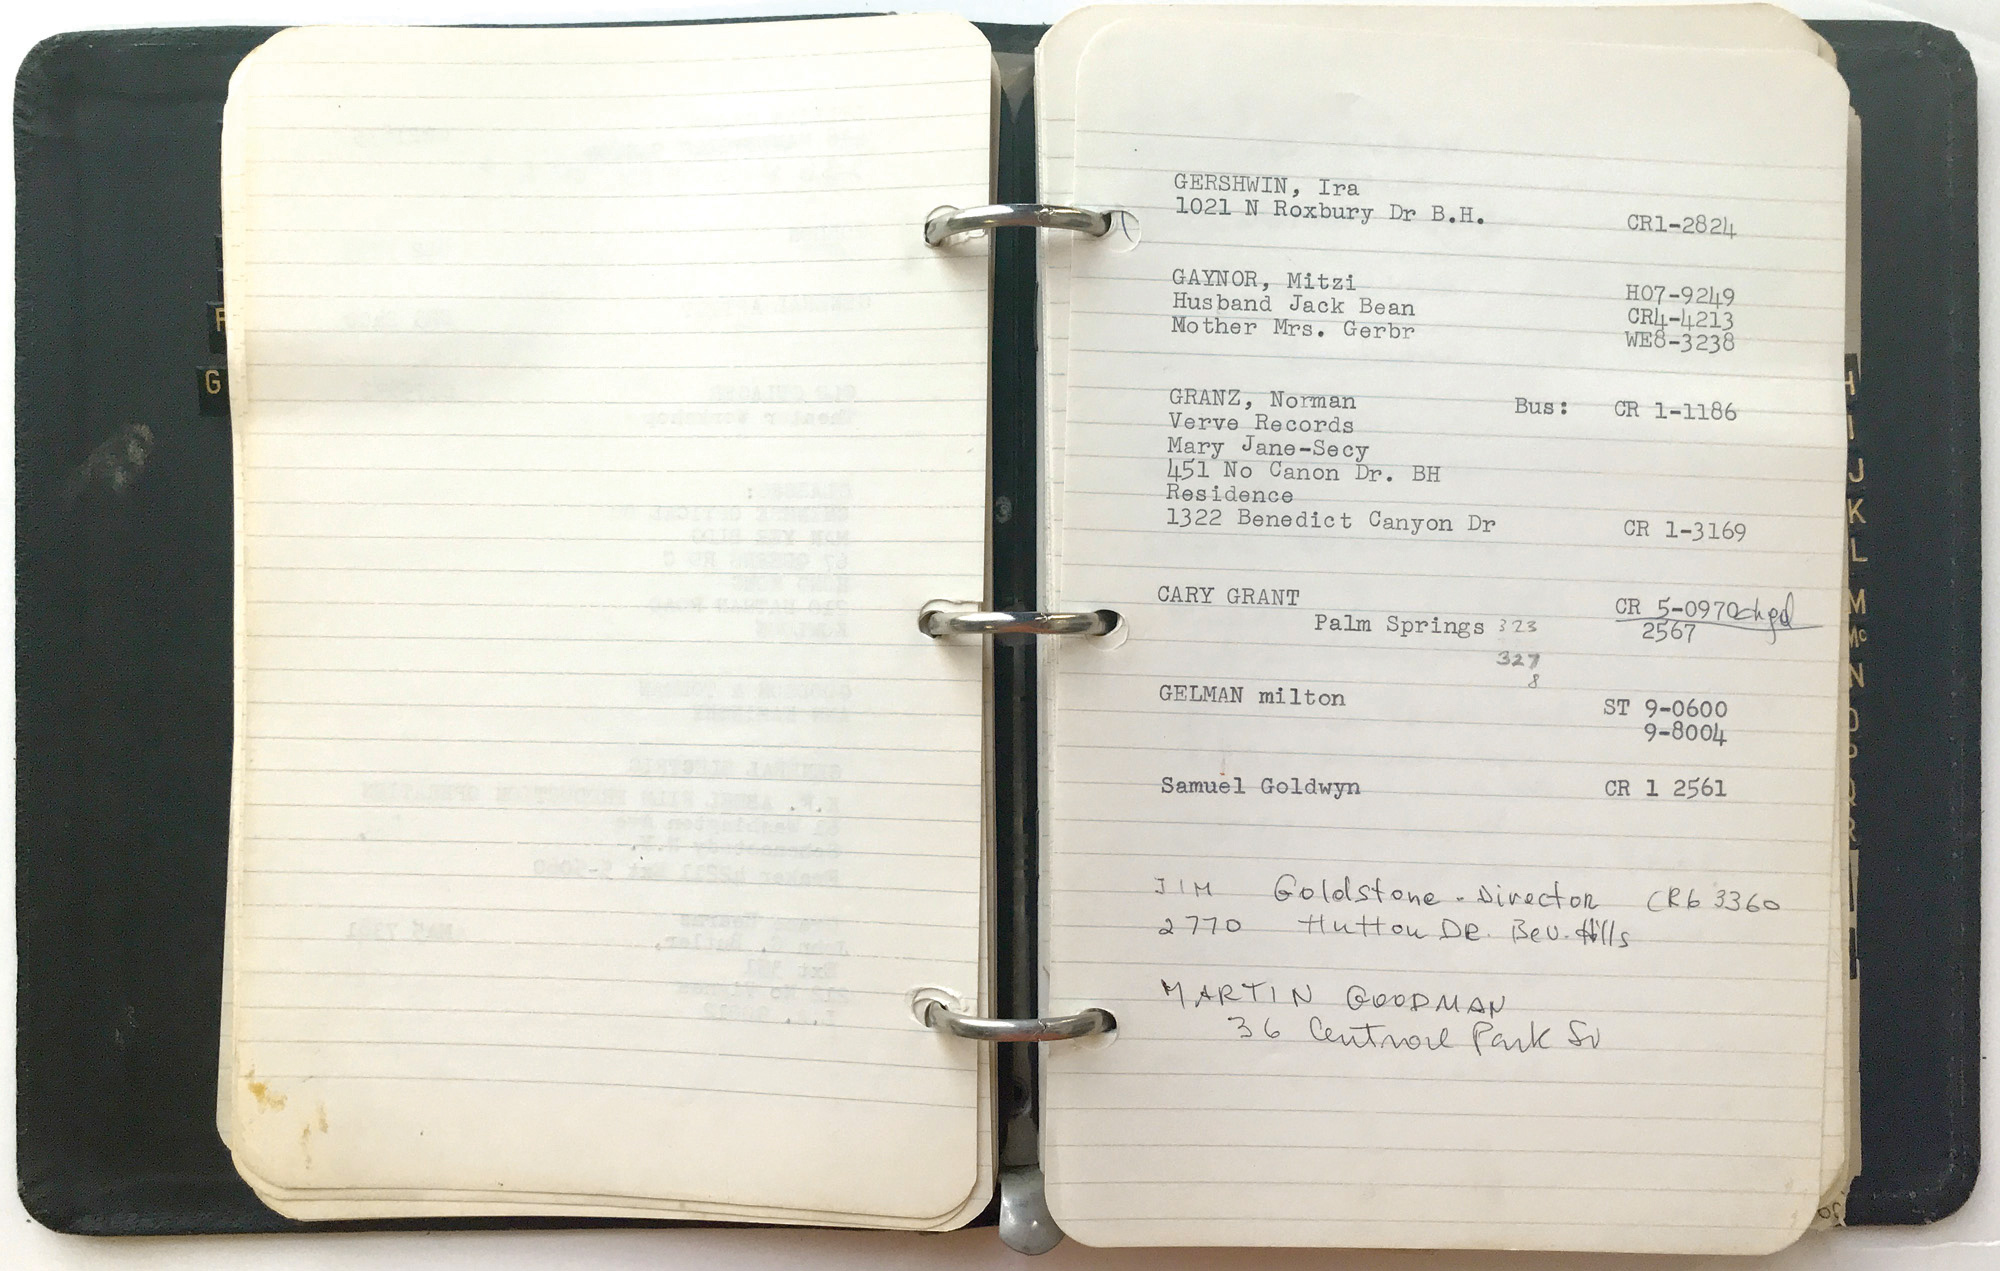 F
G
GERSHWIN, Ira
1021 N Roxbury Dr B.H. CR1-2824
GAYNOR, Mitzi HO7-9249
Husband Jack Bean CR4-4213
Mother Mrs. Gerbr WE8-3238
GRANZ, Norman Bus: CR 1-1186
Verve Records
Mary Jane-Secy
451 No Canon Dr. BH
Residence
1322 Benedict Canyon Dr CR 1-3169
CARY GRANT CR 5-0970 chgd
Palm Springs 323 2567
327
8
GELMAN milton ST 9-0600
9-8004
Samuel Goldwyn CR 1 2561
JIM Goldstone - Director CR6 3360
2770 Hutton DR. Bev. Hills
MARTIN GOODMAN
36 Central Park So
H
I
J
K
L
M
Mc
N
O
P
Q
R